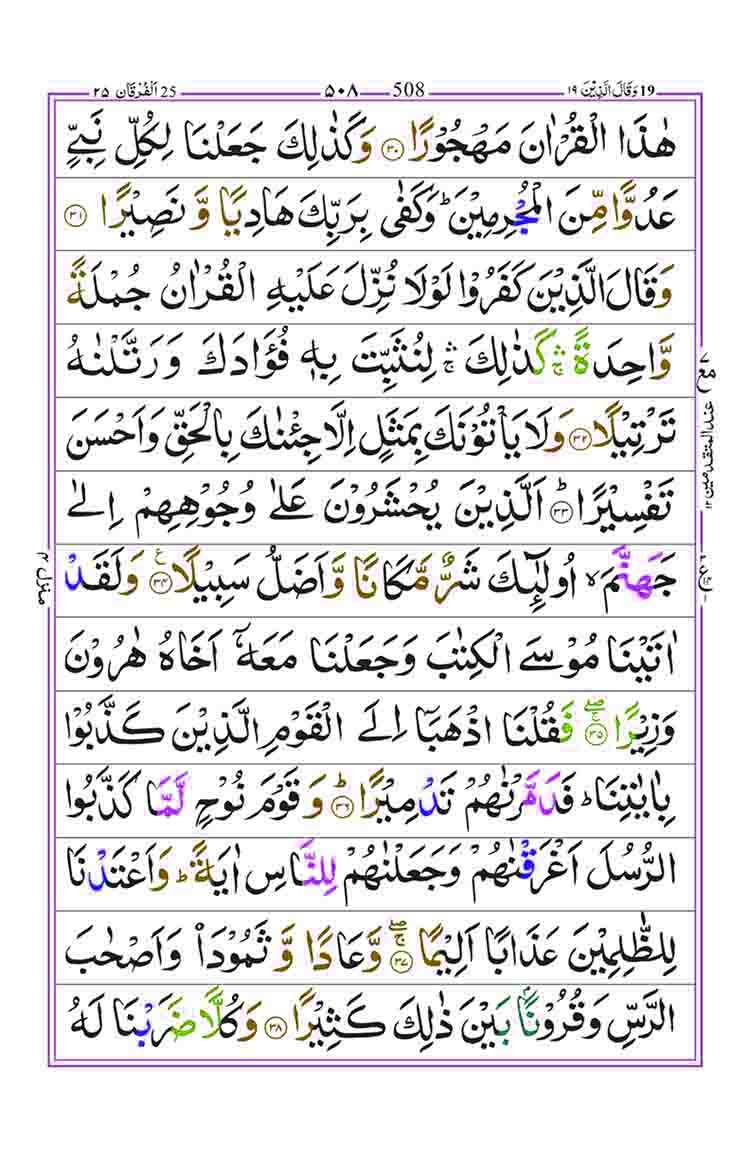 19 وَقَالَ الَّذِیْنَ ۱۹ 508 ۵۰۸ 25 اَلْفُرْقَان ۲۵
هٰذَا الْقُرْاٰنَ مَهْجُوْرًا ۳۰ وَكَذٰلِكَ جَعَلْنَا لِكُلِّ نَبِیٍّ
عَدُوًّا مِّنَ الْمُجْرِمِیْنَ ؕ وَكَفٰی بِرَبِّكَ هَادِیًا وَّ نَصِیْرًا ۳۱
وَقَالَ الَّذِیْنَ كَفَرُوْا لَوْلَا نُزِّلَ عَلَیْهِ الْقُرْاٰنُ جُمْلَةً
وَّاحِدَةً ۛۚ كَذٰلِكَ ۛۚ لِنُثَبِّتَ بِهٖ فُؤَادَكَ وَرَتَّلْنٰهُ
تَرْتِیْلًا ۳۲ وَلَا یَاْتُوْنَكَ بِمَثَلٍ اِلَّا جِئْنٰكَ بِالْحَقِّ وَاَحْسَنَ
تَفْسِیْرًا ؕ ۳۳ اَلَّذِیْنَ یُحْشَرُوْنَ عَلٰی وُجُوْهِهِمْ اِلٰی
جَهَنَّمَ ۙ اُولٰٓئِكَ شَرٌّ مَّكَانًا وَّاَضَلُّ سَبِیْلًا ۳۴ ع وَلَقَدْ
اٰتَیْنَا مُوْسَی الْكِتٰبَ وَجَعَلْنَا مَعَهٗۤ اَخَاهُ هٰرُوْنَ
وَزِیْرًا ۚۖ ۳۵ فَقُلْنَا اذْهَبَاۤ اِلَی الْقَوْمِ الَّذِیْنَ كَذَّبُوْا
بِاٰیٰتِنَا ؕ فَدَمَّرْنٰهُمْ تَدْمِیْرًا ؕ ۳۶ وَ قَوْمَ نُوْحٍ لَّمَّا كَذَّبُوا
الرُّسُلَ اَغْرَقْنٰهُمْ وَجَعَلْنٰهُمْ لِلنَّاسِ اٰیَةً ؕ وَاَعْتَدْنَا
لِلظّٰلِمِیْنَ عَذَابًا اَلِیْمًا ۚۖ ۳۷ وَّعَادًا وَّ ثَمُوْدَا۠ وَاَصْحٰبَ
الرَّسِّ وَقُرُوْنًۢا بَیْنَ ذٰلِكَ كَثِیْرًا ۳۸ وَكُلًّا ضَرَبْنَا لَهُ
مع ۷
عند المتقدمین ۱۲
ع
منزل ۴